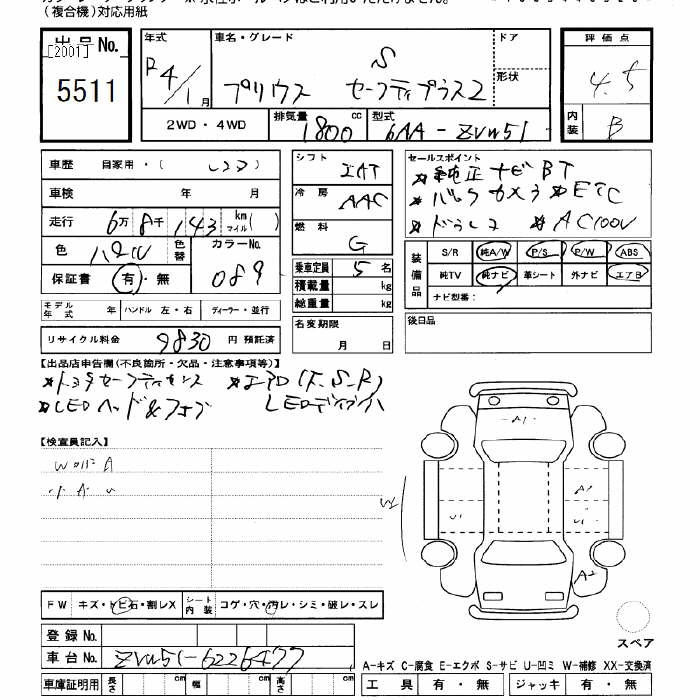 (複合機)対応用紙
出品No.
[2001]
5511
年式
R4/1月
車名・グレード
S
プリウス セーフティプラス2
ドア
形状
評価点
4.5
内装
B
2WD・4WD
排気量
1800 cc
型式
6AA-ZVW51
車歴 自家用・( レンタ )
車検 年 月
走行 6万8千143 km マイル ( )
色 パール
色替
カラーNo.
089
保証書 有・無
モデル年式 年 ハンドル 左・右 ディーラー・並行
リサイクル料金 9830 円 預託済
シフト
IAT
冷房
AAC
燃料
G
乗車定員 5 名
積載量 kg
総重量 kg
名変期限
月 日
セールスポイント
★純正ナビ BT
★バックカメラ ★ETC
★ドラレコ ★AC100V
装備品
S/R 純A/W P/S P/W ABS
純TV 純ナビ 革シート 外ナビ エアB
ナビ型番:
後日品
【出品店申告欄(不良箇所・欠品・注意事項等)】
★トヨタセーフティセンス
★LEDヘッド&フォグ
【検査員記入】
A1
A1
U1
U1
W1
A2
FW キズ・トビ石・割レX
シート内装 コゲ・穴・汚レ・シミ・破レ・スレ
登録No.
車台No. ZVW51-6226477
車庫証明用 長さ cm 幅 cm 高さ cm
スペア
A-キズ C-腐食 E-エクボ S-サビ U-凹ミ W-補修 XX-交換済
工具 有・無 ジャッキ 有・無